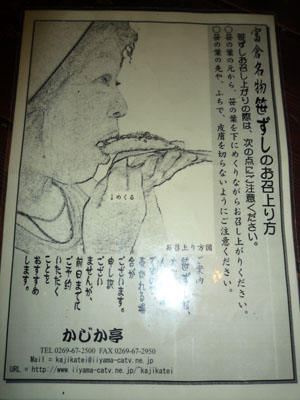 富倉名物 笹ずしのお召上り方
笹ずしお召し上がりの際は、次の点にご注意ください。
○笹の葉の元から、笹の葉を下にめくりながらお召上がりください。
○笹の葉の先や、ふちで、皮膚を切らないようにご注意ください。
めくる
お召上り方図
ご案内
笹ずしは、
合が
ございます。
申し訳
ませんが、
前日までに
ご予約
いただく
ことを
おすすめ
します。
かじか亭
TEL 0269-67-2500 FAX 0269-67-2950
Mail = kajikatei@iiyama-catv.ne.jp
URL = http://www.iiyama-catv.ne.jp/~kajikatei